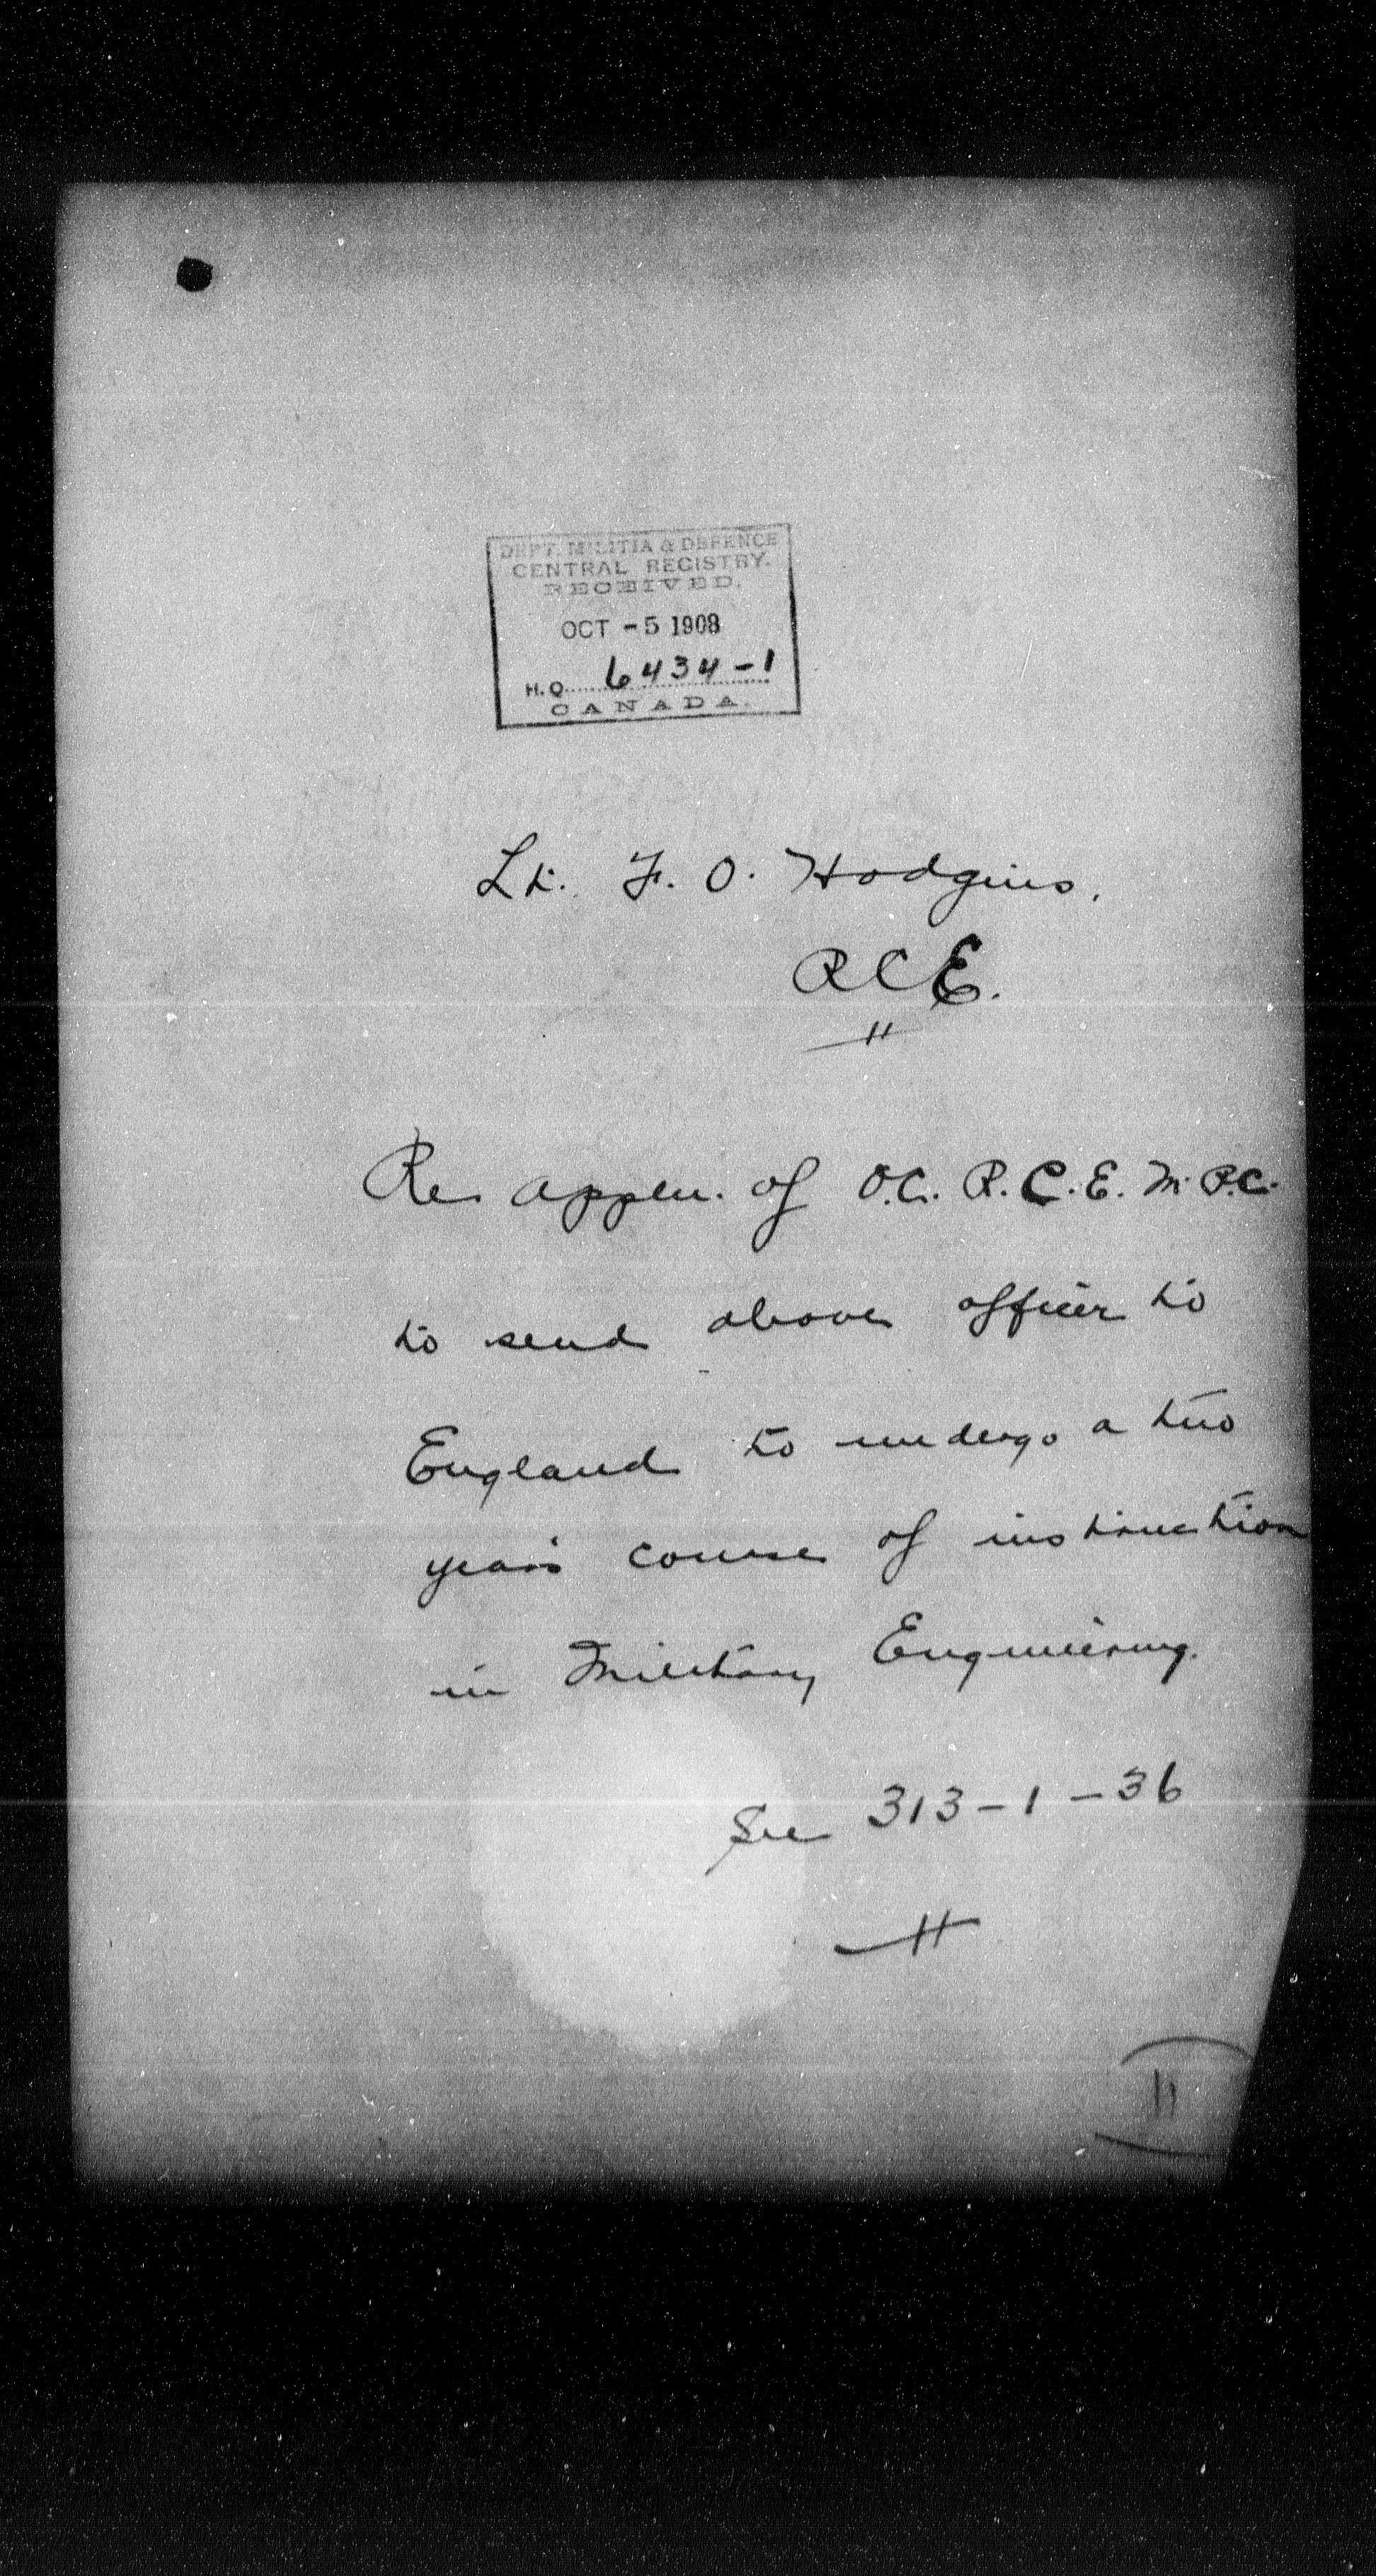 DEPT. MILITIA & DEFENCE
CENTRAL REGISTRY.
RECEIVED.
OCT -5 1908
H.Q. 6434-1
CANADA.
Lt. F. O. Hodgins.
RCE.
Re appln. of O.C. R.C.E. M.P.C.
to send above officer to
England to undergo a two
years course of instruction
in Military Engineering.
See 313-1-36